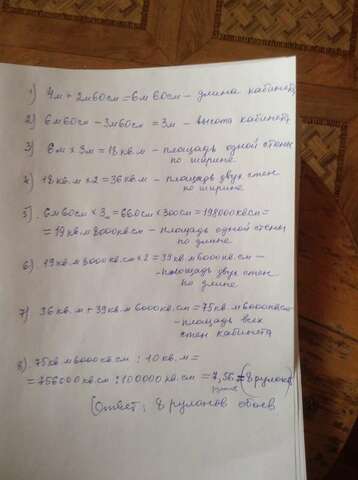 1) 4м + 2м60см = 6м 60см - длина кабинета
2) 6м60см - 3м60см = 3м - высота кабинета
3) 6м х 3м = 18 кв.м - площадь одной стены
по ширине
4) 18 кв.м х 2 = 36 кв.м - площадь двух стен
по ширине
5) 6м60см х 3м = 660см х 300см = 198000 кв см =
= 19 кв.м 8000 кв.см - площадь одной стены
по длине
6) 19 кв.м 8000 кв.см х 2 = 39 кв.м 6000 кв.см -
- площадь двух стен
по длине
7) 36 кв.м + 39 кв.м 6000 кв.см = 75 кв.м 6000 кв см
- площадь всех
стен кабинета
8) 75 кв м 6000 кв см : 10 кв.м =
= 756000 кв.см : 100000 кв.см = 7,56 = (8 рулонов)
(Ответ: 8 рулонов обоев